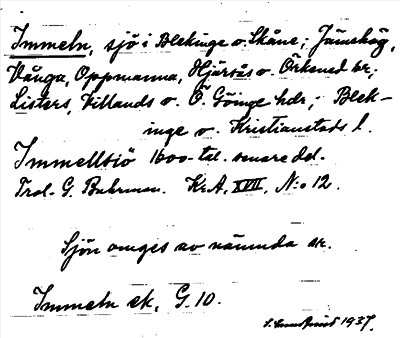 Immeln, sjö i Blekinge o. Skåne; Jämshög,
Vånga, Oppmanna, Hjärsås o. Örkened sr;
Listers, Villands o. Ö. Göinge hdr; Blek-
inge o. Kristianstads l.
Immellsiö 1600-tal. senare del.
Trol. G. Buhrman. Kr.A, XVII, N:o 12.
Sjön omges av nämnda sr.
Immeln ek, G. 10.
1937.